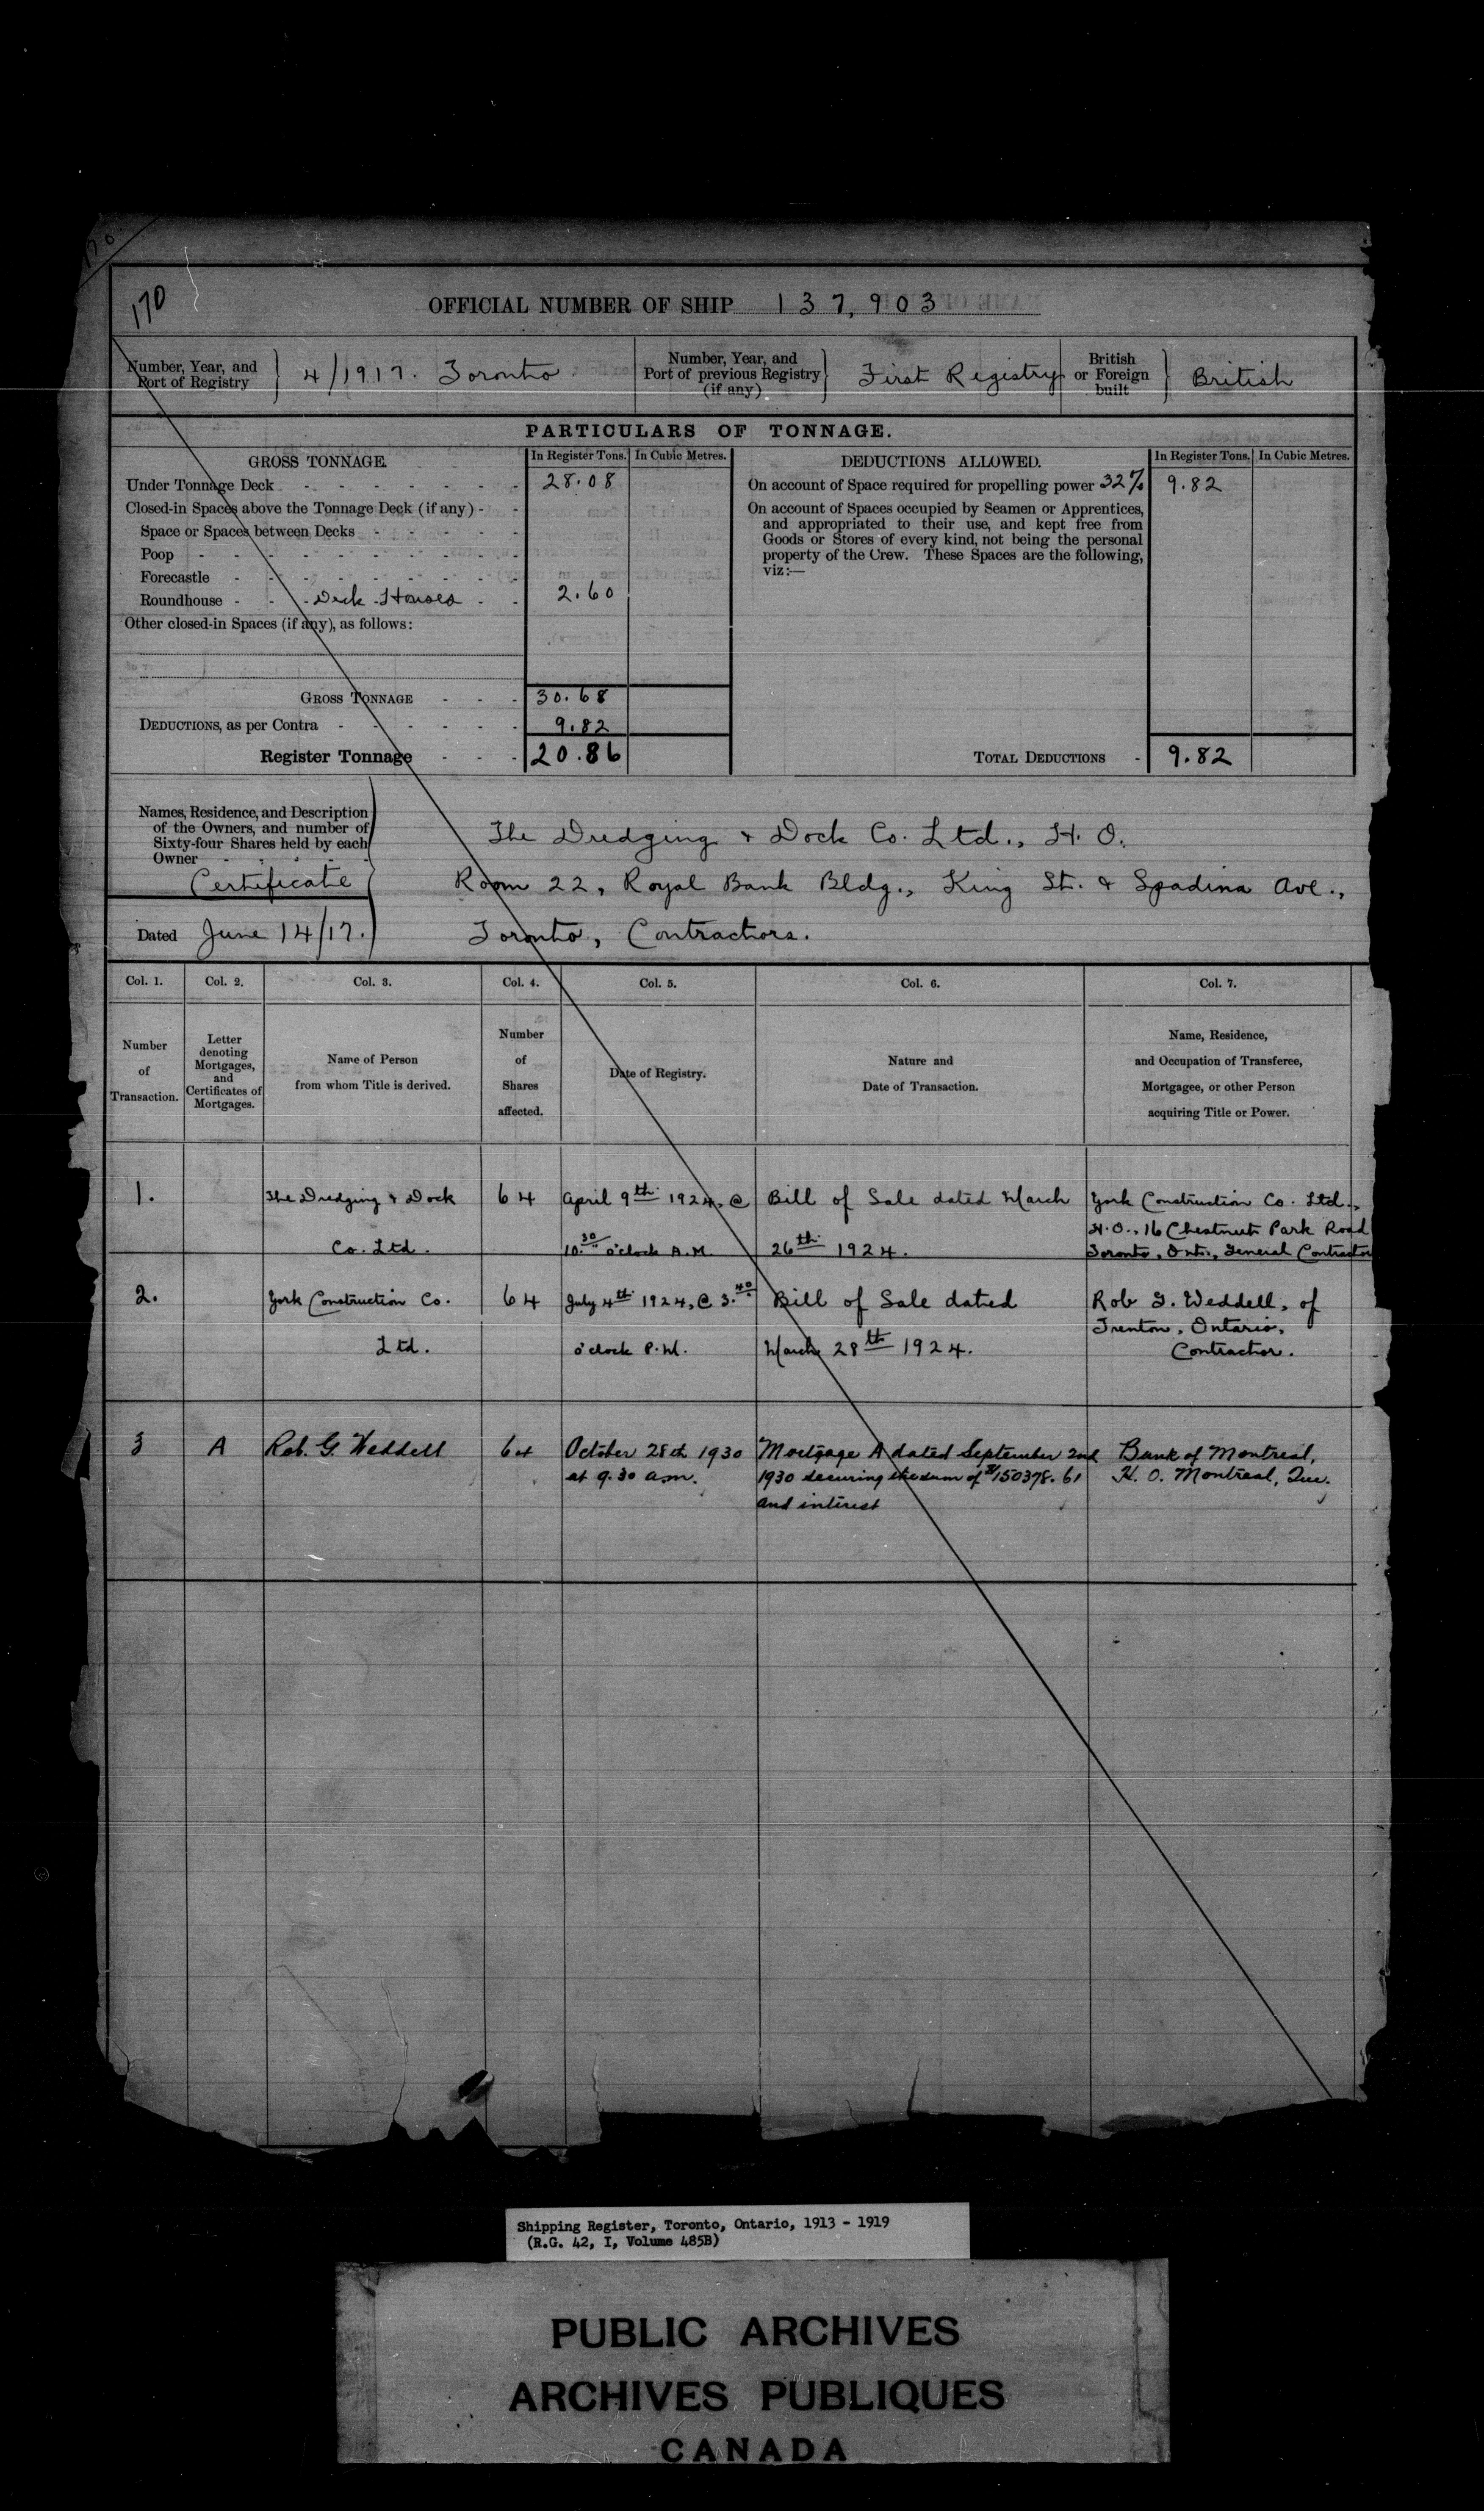 170
OFFICIAL NUMBER OF SHIP 137,903
Number, Year, and Port of Registry } 4/1917. Toronto.
Number, Year, and Port of previous Registry (if any) } First Registry
British or Foreign built } British
PARTICULARS OF TONNAGE.
GROSS TONNAGE. In Register Tons. In Cubic Metres.
Under Tonnage Deck - - - - - - - 28.08
Closed-in Spaces above the Tonnage Deck (if any) - -
Space or Spaces between Decks - - - - -
Poop - - - - - - - - - -
Forecastle - - - - - - - - -
Roundhouse - - - Deck Houses - - 2.60
Other closed-in Spaces (if any), as follows:
GROSS TONNAGE - - - 30.68
DEDUCTIONS, as per Contra - - - - - - 9.82
Register Tonnage - - - 20.86
DEDUCTIONS ALLOWED. In Register Tons. In Cubic Metres.
On account of Space required for propelling power 32% 9.82
On account of Spaces occupied by Seamen or Apprentices,
and appropriated to their use, and kept free from
Goods or Stores of every kind, not being the personal
property of the Crew. These Spaces are the following,
viz:—
TOTAL DEDUCTIONS - 9.82
Names, Residence, and Description
of the Owners, and number of
Sixty-four Shares held by each
Owner - - - -
Certificate
Dated June 14/17.
The Dredging & Dock Co. Ltd., H. O.
Room 22, Royal Bank Bldg., King St. & Spadina Ave.,
Toronto, Contractors.
Col. 1. Col. 2. Col. 3. Col. 4. Col. 5. Col. 6. Col. 7.
Number of Transaction.
Letter denoting Mortgages, and Certificates of Mortgages.
Name of Person from whom Title is derived.
Number of Shares affected.
Date of Registry.
Nature and Date of Transaction.
Name, Residence, and Occupation of Transferee, Mortgagee, or other Person acquiring Title or Power.
1. The Dredging & Dock 64 April 9th 1924, @ Bill of Sale dated March York Construction Co. Ltd.,
H.O., 16 Chestnut Park Road
Co. Ltd. 10.30 o'clock A.M. 26th 1924. Toronto, Ont., General Contractor
2. York Construction Co. 64 July 4th 1924, @ 3.40 Bill of Sale dated Rob G. Weddell, of
Trenton, Ontario,
Ltd. o'clock P.M. March 28th 1924. Contractor.
3 A Rob. G. Weddell 64 October 28th 1930 Mortgage A dated September 2nd Bank of Montreal,
at 9.30 a.m. 1930 securing the sum of $150378.61 H. O. Montreal, Que.
and interest
Shipping Register, Toronto, Ontario, 1913 - 1919
(R.G. 42, I, Volume 485B)
PUBLIC ARCHIVES
ARCHIVES PUBLIQUES
CANADA